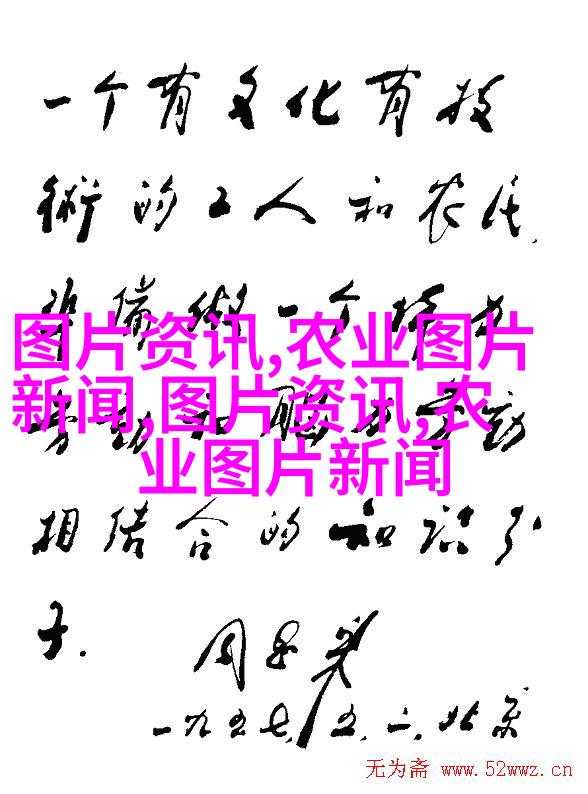 一个有文化有技
術的工人和农民,
備做一个
图片资讯,农业图片
新闻,图片资讯,农
劳动和脑力劳动
业图片新闻
相结合的知识分
子.
周恩来
一九五七,五,二,北京
无为斋 www.52wwz.cn